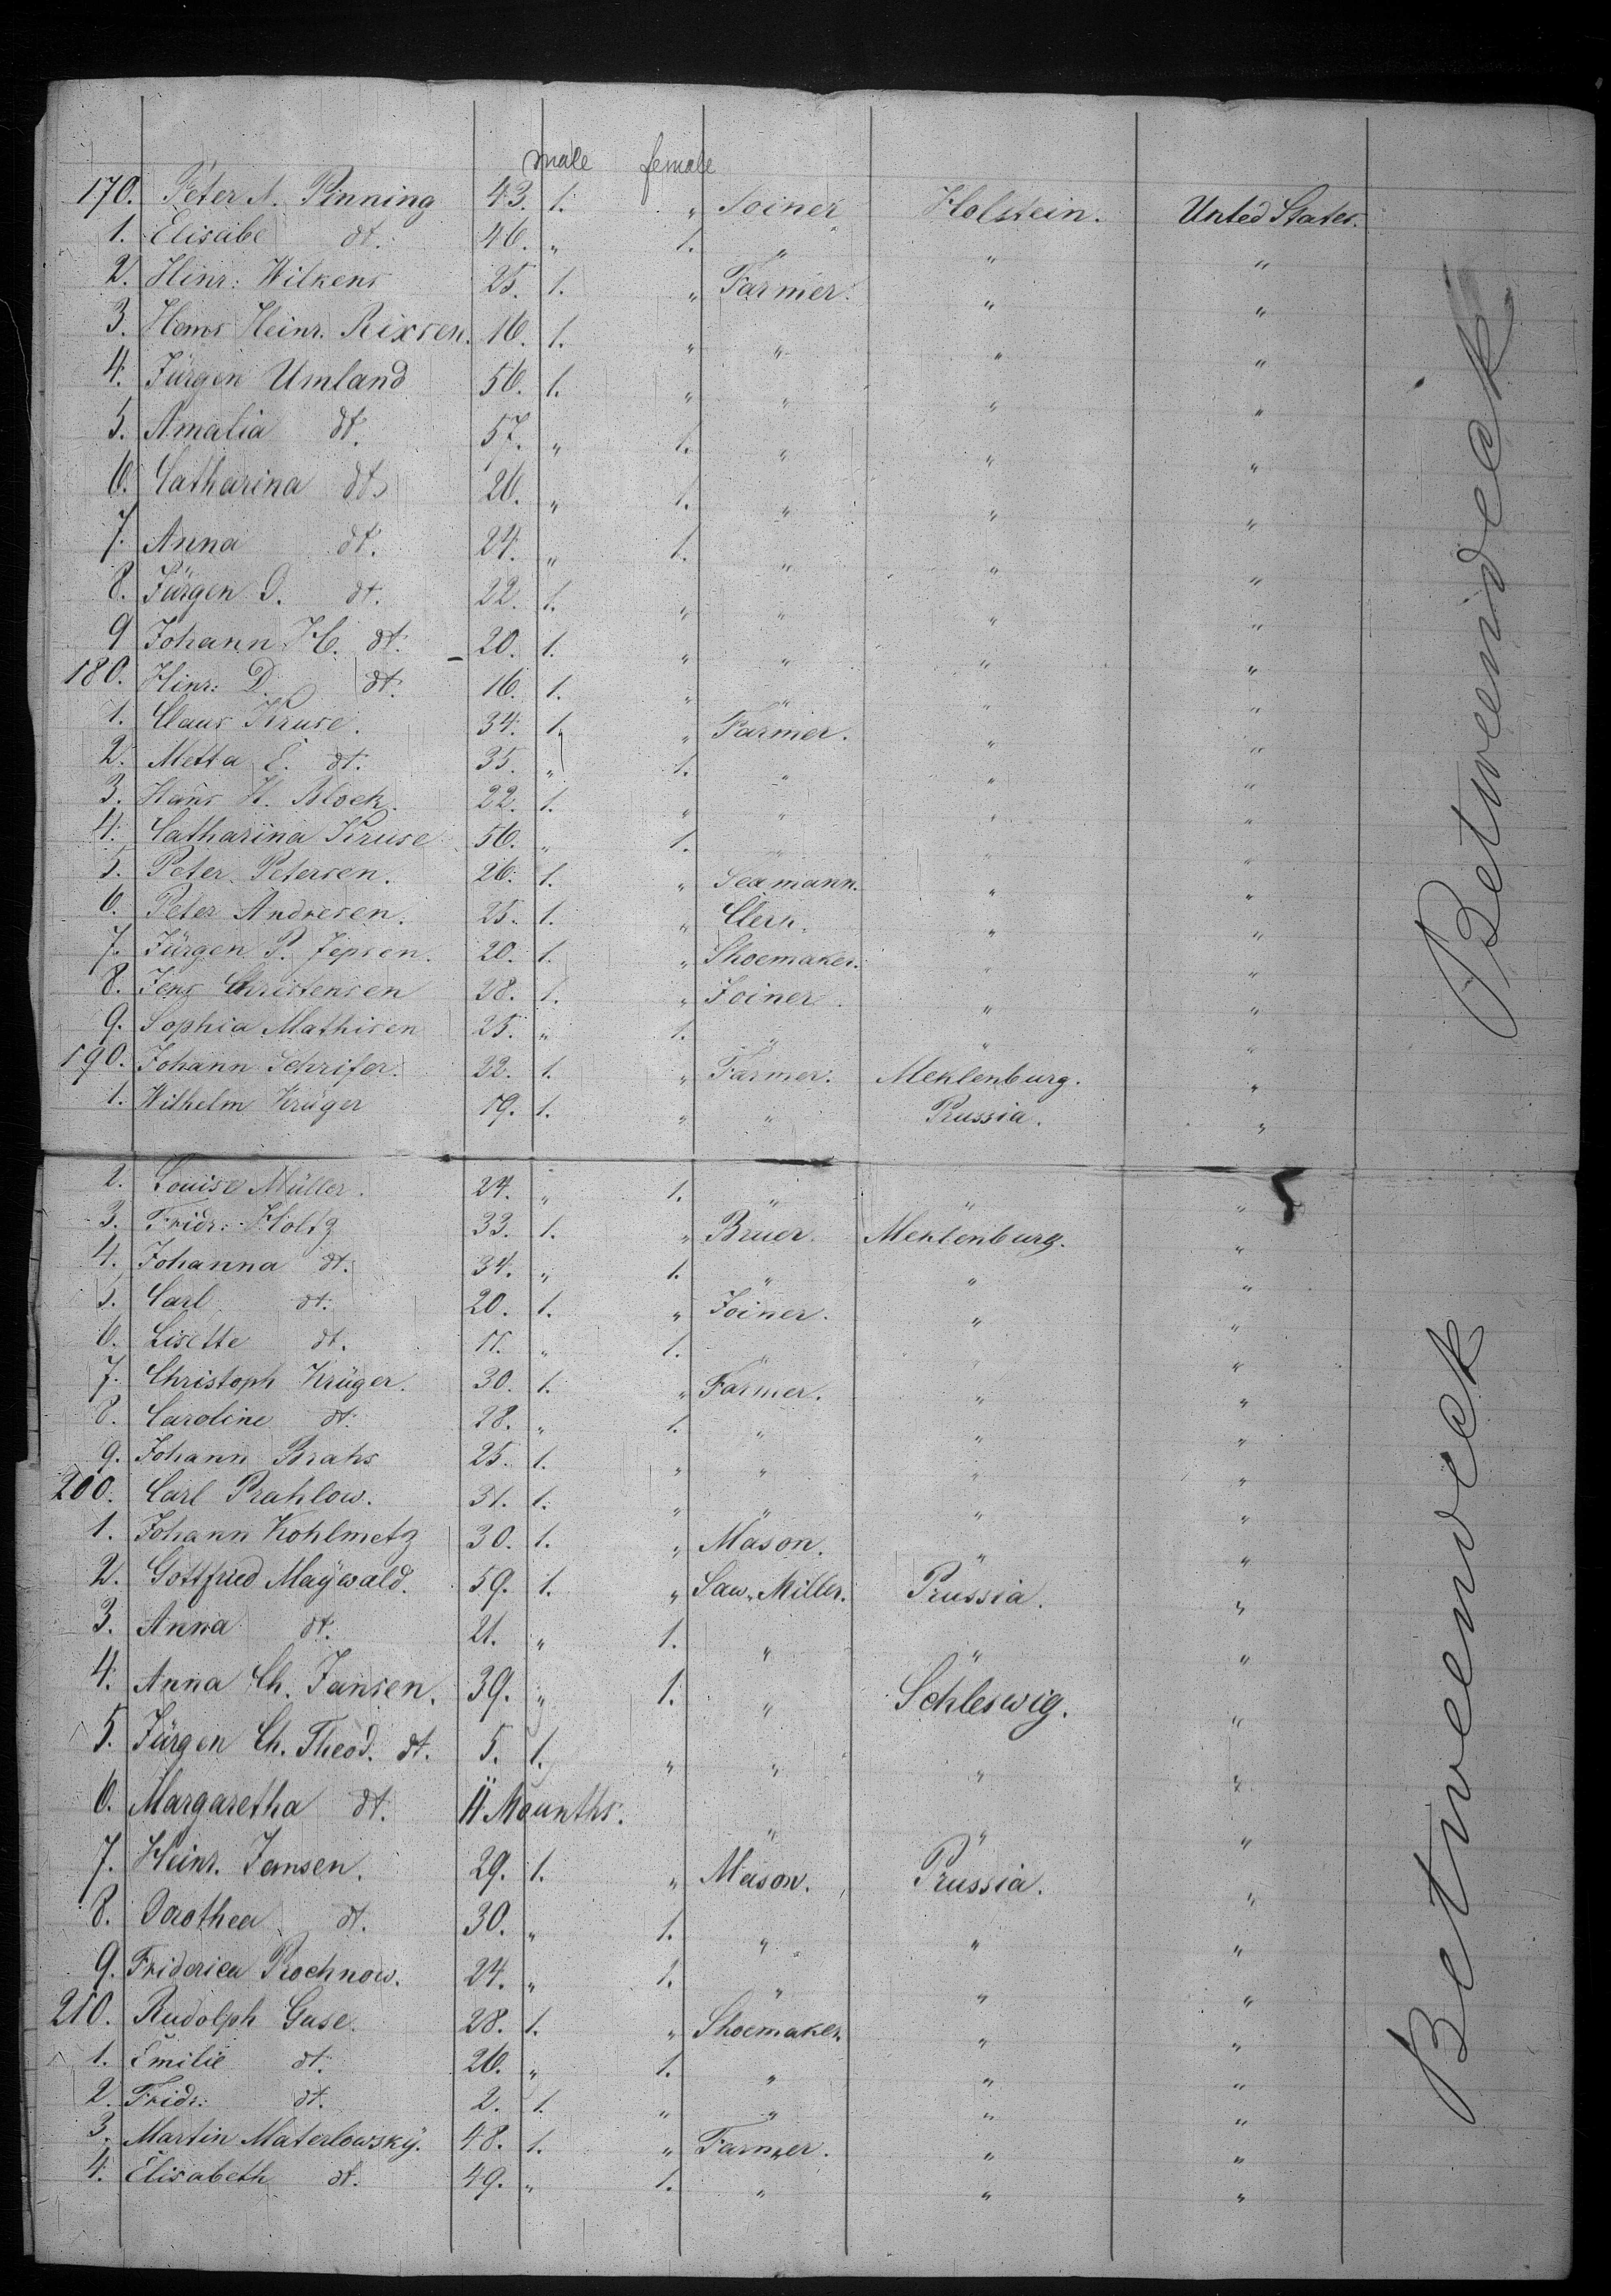 male female
170. Peter A. Pinning 43. 1. " Joiner Holstein. Unted States.
1. Elisabe dt. 46. " 1. " " "
2. Hinr: Wilkens 25. 1. " Farmer. " "
3. Hans Heinr. Rixsen. 16. 1. " " " "
4. Jürgen Umland 56. 1. " " " "
5. Amalia dt. 57. " 1. " " "
6. Catharina dt. 26. " 1. " " "
7. Anna dt. 24. " 1. " " "
8. Jürgen D. dt. 22. 1. " " " "
9 Johann H. dt. 20. 1. " " " "
180. Hinr: D. dt. 16. 1. " " " "
1. Claus Kruse. 34. 1. " Farmer. " "
2. Metta E. dt. 35. " 1. " " "
3. Hans H. Block. 22. 1. " " " "
4. Catharina Kruse 56. " 1. " " "
5. Peter Petersen. 26. 1. " Seamann. " "
6. Peter Andresen. 25. 1. " Clerk. " "
7. Jürgen P. Jepsen. 20. 1. " Shoemaker. " "
8. Jens Christensen 28. 1. " Joiner. " "
9. Sophia Mathisen 25. " 1. " " "
190. Johann Schrifer. 22. 1. " Farmer. Meklenburg. "
1. Wilhelm Krüger 19. 1. " " Prussia. "
2. Louise Müller. 24. " 1. " " "
3. Fridr: Holtz 33. 1. " Bruer. Meklenburg. "
4. Johanna dt. 34. " 1. " " "
5. Carl dt. 20. 1. " Joiner. " "
6. Lisette dt. 11. " 1. " " "
7. Christoph Krüger. 30. 1. " Farmer. " "
8. Caroline dt. 28. " 1. " " "
9. Johann Brahs 25. 1. " " " "
200. Carl Prahlow. 31. 1. " " " "
1. Johann Kohlmetz 30. 1. " Mason. " "
2. Gottfried Maÿwald. 59. 1. " Saw-Miller. Prussia. "
3. Anna dt. 21. " 1. " " "
4. Anna Ch. Jansen. 39. " 1. " Schleswig. "
5. Jürgen Ch. Theod. dt. 5. 1. " " " "
6. Margaretha dt. 11 Mounths. " " "
7. Heinr. Jansen. 29. 1. " Mason. Prussia. "
8. Dorothea dt. 30. " 1. " " "
9. Friderica Prochnow. 24. " 1. " " "
210. Rudolph Guse. 28. 1. " Shoemaker. " "
1. Emilie dt. 26. " 1. " " "
2. Fridr: dt. 2. 1. " " " "
3. Martin Materlowskÿ. 48. 1. " Farmer. " "
4. Elisabeth dt. 49. " 1. " " "
Betweendeck
Betweendeck